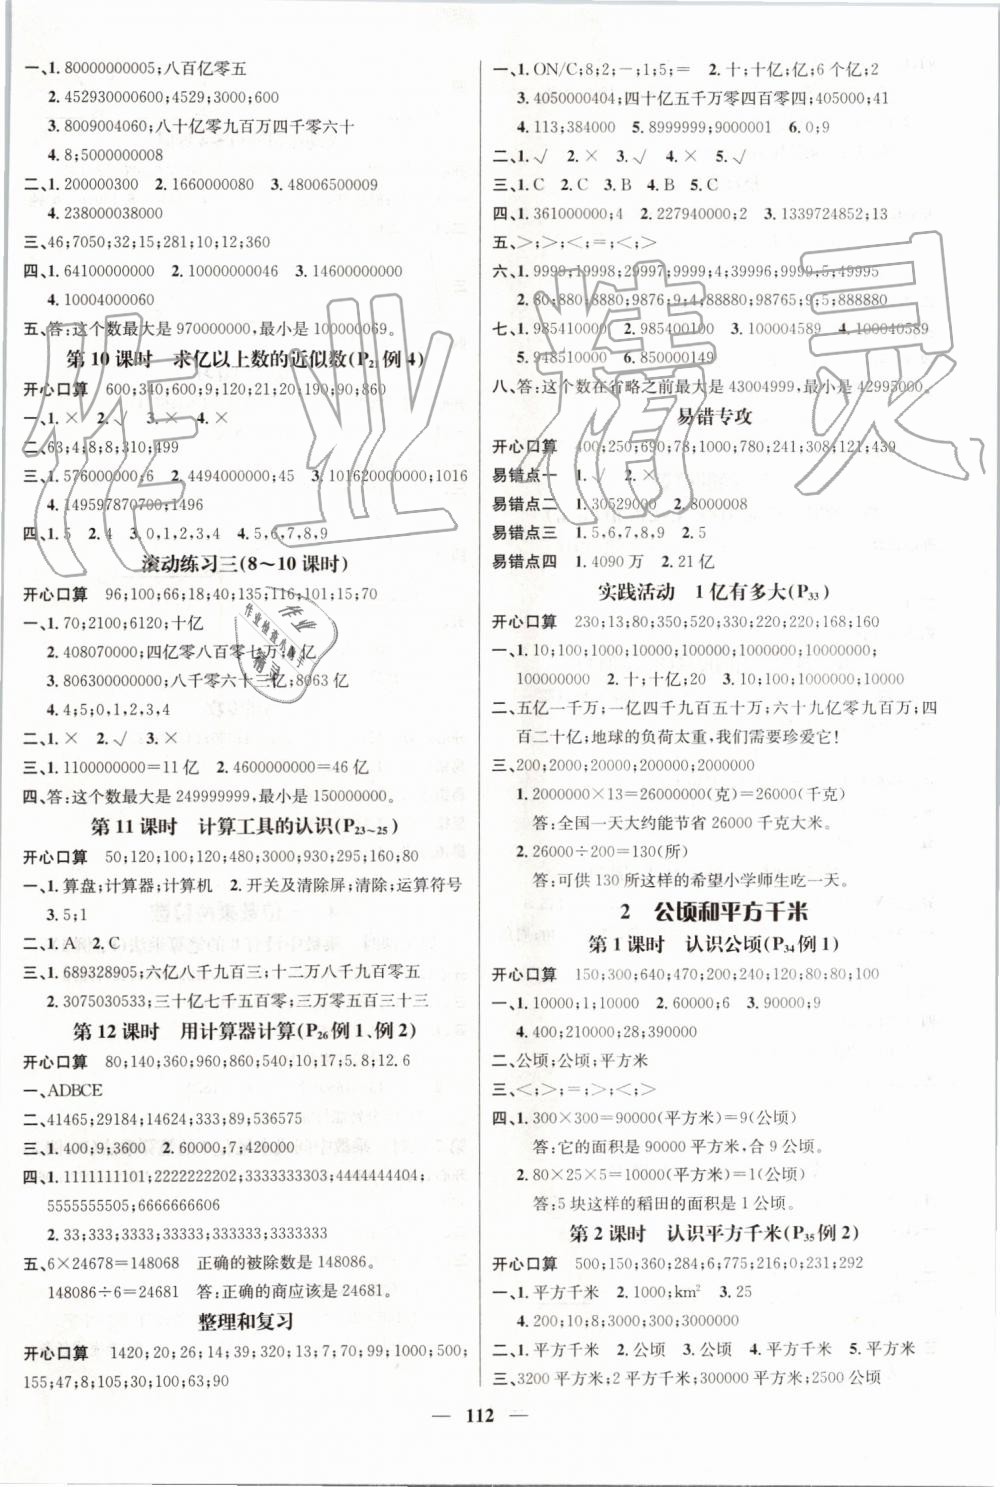 一、1. 80000000005;八百亿零五
2. 452930000600;4529;3000;600
3. 8009004060;八十亿零九百万四千零六十
4. 8;5000000008
二、1. 200000300 2. 1660000080 3. 48006500009
4. 238000038000
三、46;7050;32;15;281;10;12;360
四、1. 64100000000 2. 10000000046 3. 14600000000
4. 10004000060
五、答:这个数最大是 970000000,最小是 100000069。
第 10 课时 求亿以上数的近似数(P21例 4)
开心口算 600;340;600;9;120;21;20;190;90;860
一、1. × 2. √ 3. × 4. ×
二、63;4;8;8;310;499
三、1. 576000000;6 2. 4494000000;45 3. 101620000000;1016
4. 149597870700;1496
四、1. 5 2. 4 3. 0,1,2,3,4 4. 5,6,7,8,9
滚动练习三(8～10 课时)
开心口算 96;100;66;18;40;135;116;101;15;70
一、1. 70;2100;6120;十亿
2. 408070000;四亿零八百零七万;4亿
3. 806300000000;八千零六十三亿;8063 亿
4. 4;5;0,1,2,3,4
二、1. × 2. √ 3. ×
三、1. 1100000000=11 亿 2. 4600000000=46 亿
四、答:这个数最大是 249999999,最小是 150000000。
第 11 课时 计算工具的认识(P23~25)
开心口算 50;120;100;120;480;3000;930;295;160;80
一、1. 算盘;计算器;计算机 2. 开关及清除屏;清除;运算符号
3. 5;1
二、1. A 2. C
三、1. 689328905;六亿八千九百三;十二万八千九百零五
2. 3075030533;三十亿七千五百零;三万零五百三十三
第 12 课时 用计算器计算(P26例 1、例 2)
开心口算 80;140;360;960;860;540;10;17;5.8;12.6
一、ADBCE
二、41465;29184;14624;333;89;536575
三、1. 400;9;3600 2. 60000;7;420000
四、1. 1111111101;2222222202;3333333303;4444444404;
5555555505;6666666606
2. 33;3333;333333;33333333
五、6×24678=148068 正确的被除数是 148086。
148086÷6=24681 答:正确的商应该是 24681。
整理和复习
开心口算 1420;20;26;14;39;320;13;7;70;99;1000;500;
155;47;8;105;30;61;63;90
一、1. ON/C;8;2;-;1;5;= 2. 十;十亿;亿;6 个亿;2
3. 4050000404;四十亿五千万零四百零四;405000000;41
4. 113;384000 5. 8999999;9000001 6. 0;9
二、1. √ 2. × 3. √ 4. × 5. √
三、1. C 2. C 3. B 4. B 5. C
四、1. 361000000;4 2. 227940000;2 3. 1339724852;13
五、>;>;<;=;<;>
六、1. 9999;19998;29997;9999;4;39996;9999;5;49995
2. 80;880;8880;9876;9;4;88880;98765;9;3;888880
七、1. 985410000 2. 985400100 3. 100004589 4. 100040589
5. 948510000 6. 850000149
八、答:这个数在省略之前最大是 43004999,最小是 42995000。
易错专攻
开心口算 400;250;690;78;1000;780;241;308;121;439
易错点一 1. √ 2. ×
易错点二 1. 30529000 2. 8000008
易错点三 1. 5,6,7,8,9 2. 5
易错点四 1. 4090 万 2. 21 亿
实践活动 1 亿有多大(P33)
开心口算 230;13;80;350;520;330;220;220;168;160
一、1. 10;100;1000;10000;100000;1000000;10000000;
100000000 2. 十;十亿;20 3. 10;100;1000;10000
二、五亿一千万;一亿四千九百五十万;六十九亿零九百万;四
百二十亿;地球的负荷太重,我们需要珍爱它!
三、200;2000;20000;200000;2000000
1. 2000000×13=26000000(克)=26000(千克)
答:全国一天大约能节省 26000 千克大米。
2. 26000÷200=130(所)
答:可供 130 所这样的希望小学师生吃一天。
2 公顷和平方千米
第 1 课时 认识公顷(P34例 1)
开心口算 150;300;640;470;200;240;120;80;80;100
一、1. 10000;1;10000 2. 40000;6 3. 90000;9
4. 400;210000;28;390000
二、公顷;公顷;平方米
三、<;>;=;>;<;>
四、1. 300×300=90000(平方米)=9(公顷)
答:它的面积是 90000 平方米,合 9 公顷。
2. 80×25×5=10000(平方米)=1(公顷)
答:5 块这样的稻田的面积是 1 公顷。
第 2 课时 认识平方千米(P35例 2)
开心口算 500;150;360;284;6;775;216;0;231;292
一、1. 平方千米 2. 1000;km² 3. 25
4. 200;10;8;3000;300;3000000
二、1. 平方千米 2. 公顷 3. 公顷 4. 平方米 5. 平方千米
三、3200 平方米;2 平方千米;300000 平方米;2500 公顷
112
作业精灵
作业
作业检查小助手
精灵